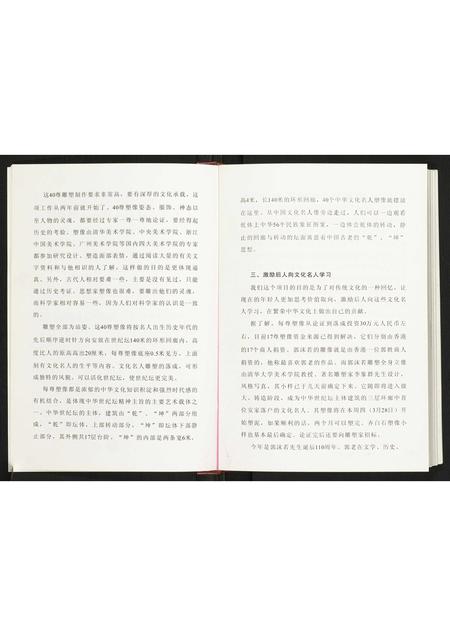 这40尊雕塑制作要求非常高，要有深厚的文化承载，这
项工作从两年前就开始了。40尊塑像姿态、服饰、神态以
至人物的灵魂，都要经过专家一尊一尊地论证，要经得起
历史的考验。塑像由清华美术学院、中央美术学院、浙江
中国美术学院、广州美术学院等国内四大美术学院的专家
都参加研究设计。塑造面部表情，通过阅读大量的有关文
字资料和与他相识的人了解。这样做的目的是更体现逼
真。另外，古代人相对要难一些，主要是没有见过，只能
通过历史考证。思想家塑像也很难，要雕出他们的灵魂。
而科学家相对容易一些，因为人们对科学家的认识是一致
的。
雕塑全部为站姿。这40尊塑像将按名人出生历史年代的
先后顺序逆时针方向安放在世纪坛140米的环形回廊内，高
度比人的原高高出20厘米，每尊塑像底座0.5米见方，上面
刻有文化名人的生平等内容。文化名人雕塑的落成，可形
成独特的风貌，可以活化世纪坛，使世纪坛更完美。
每尊塑像都是浓郁的中华文化知识积淀和强烈时代感的
有机结合，是体现中华世纪坛精神主旨的主要艺术载体之
一。中华世纪坛的主体，建筑由“乾”、“坤”两部分组
成，“乾”即坛体，上部转动部分，“坤”即坛体下部静
止部分，其外侧共17层台阶。“坤”的内部是两条宽6米、
高4米，长140米的环形回廊，40个中华文化名人塑像就摆放
在这里。从中国文化名人像旁边走过，人们可以一边观看
坛体上中华56个民族象征图案，一边体会坛体的转动，静
止的回廊与转动的坛面寓意有中国古老的“乾”、“坤”
思想。
三、激励后人向文化名人学习
我们这个项目的目的是为了对传统文化的一种回忆，让
现在的年轻人更加思考价值取向，激励后人向这些文化名人
学习，在繁荣中华文化上做出自己的贡献。
据了解，每尊塑像从论证到落成投资30万元人民币左
右，目前17尊塑像资金来源已得到解决，它们分别由香港
的17个商人捐资。郭沫若的雕像就是由香港一位郭姓商人
捐资的，他称最喜欢郭老的作品。而郭沫若雕塑全身立像
由清华大学美术学院教授、著名雕塑家李象群先生设计，
风格写真，其小样已于几天前确定下来。它随即将进入放
大、铸造阶段，成为中华世纪坛主体建筑的三层环廊中首
位安家落户的文化名人。其塑像将在本周四（3月28日）开
始塑泥，如果顺利的话，两个月可以塑定。齐白石塑像小
样也基本最后确定。论证完后还要向雕塑家招标。
今年是郭沫若先生诞辰110周年，郭老在文学、历史、